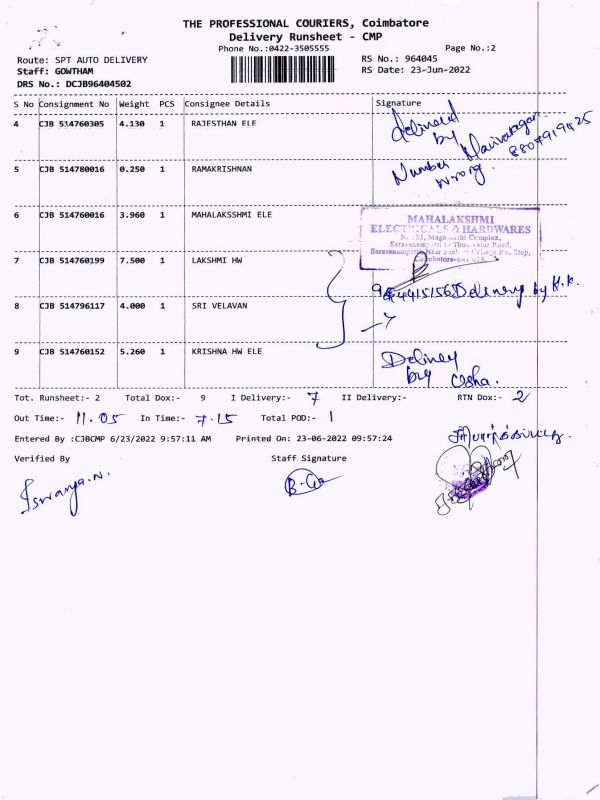 THE PROFESSIONAL COURIERS, Coimbatore
Delivery Runsheet - CMP
Phone No.:0422-3505555
Page No.:2
Route: SPT AUTO DELIVERY
RS No.: 964045
Staff: GOWTHAM
RS Date: 23-Jun-2022
DRS No.: DCJB96404502
S No Consignment No Weight PCS Consignee Details Signature
4 CJB 514760305 4.130 1 RAJESTHAN ELE
delivered
by
5 CJB 514780016 0.250 1 RAMAKRISHNAN
Number
wrong.
6 CJB 514760016 3.960 1 MAHALAKSSHMI ELE
MAHALAKSHMI
ELECTRICALS & HARDWARES
7 CJB 514760199 7.500 1 LAKSHMI HW
Delivery by H.K.
8 CJB 514796117 4.000 1 SRI VELAVAN
9 CJB 514760152 5.260 1 KRISHNA HW ELE
Delivey
by Usha.
Tot. Runsheet:- 2 Total Dox:- 9 I Delivery:- 7 II Delivery:- RTN Dox:- 2
Out Time:- 11.05 In Time:- 7.15 Total POD:- 1
Entered By :CJBCMP 6/23/2022 9:57:11 AM Printed On: 23-06-2022 09:57:24
Verified By Staff Signature